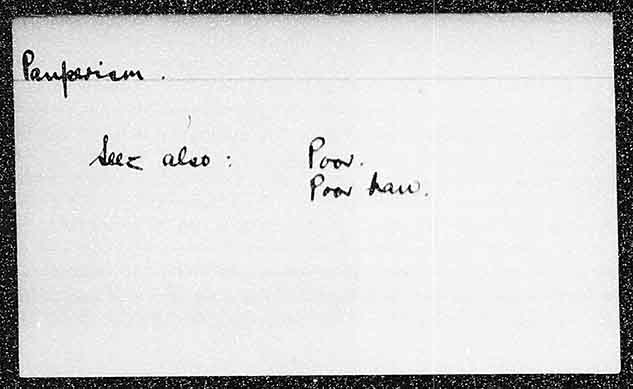 Pauperism.
See also: Poor.
Poor Law.